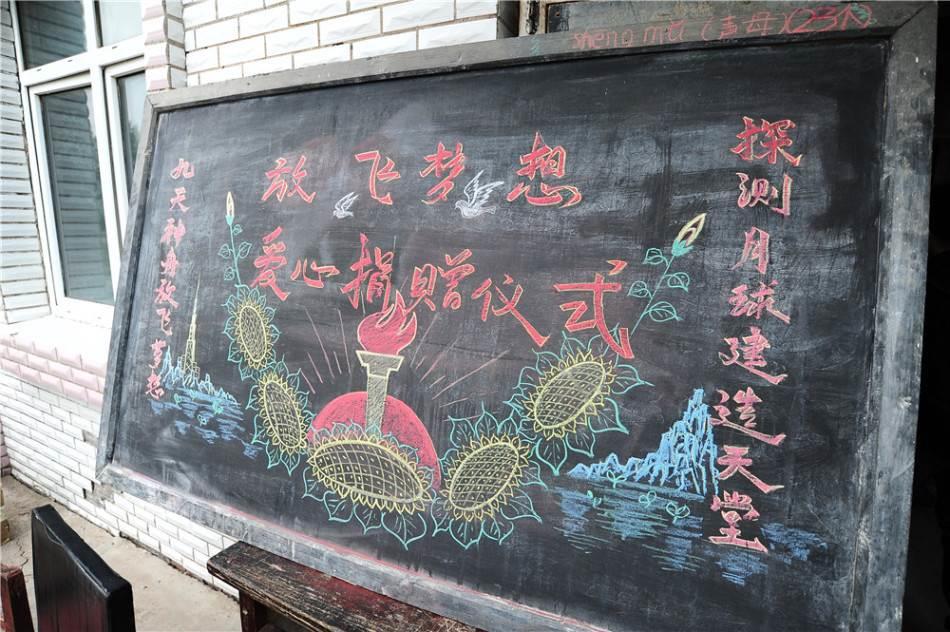 sheng mu (声母)(23个)
放飞梦想
爱心捐赠仪式
九天神舟放飞梦想
探测月球建造天堂